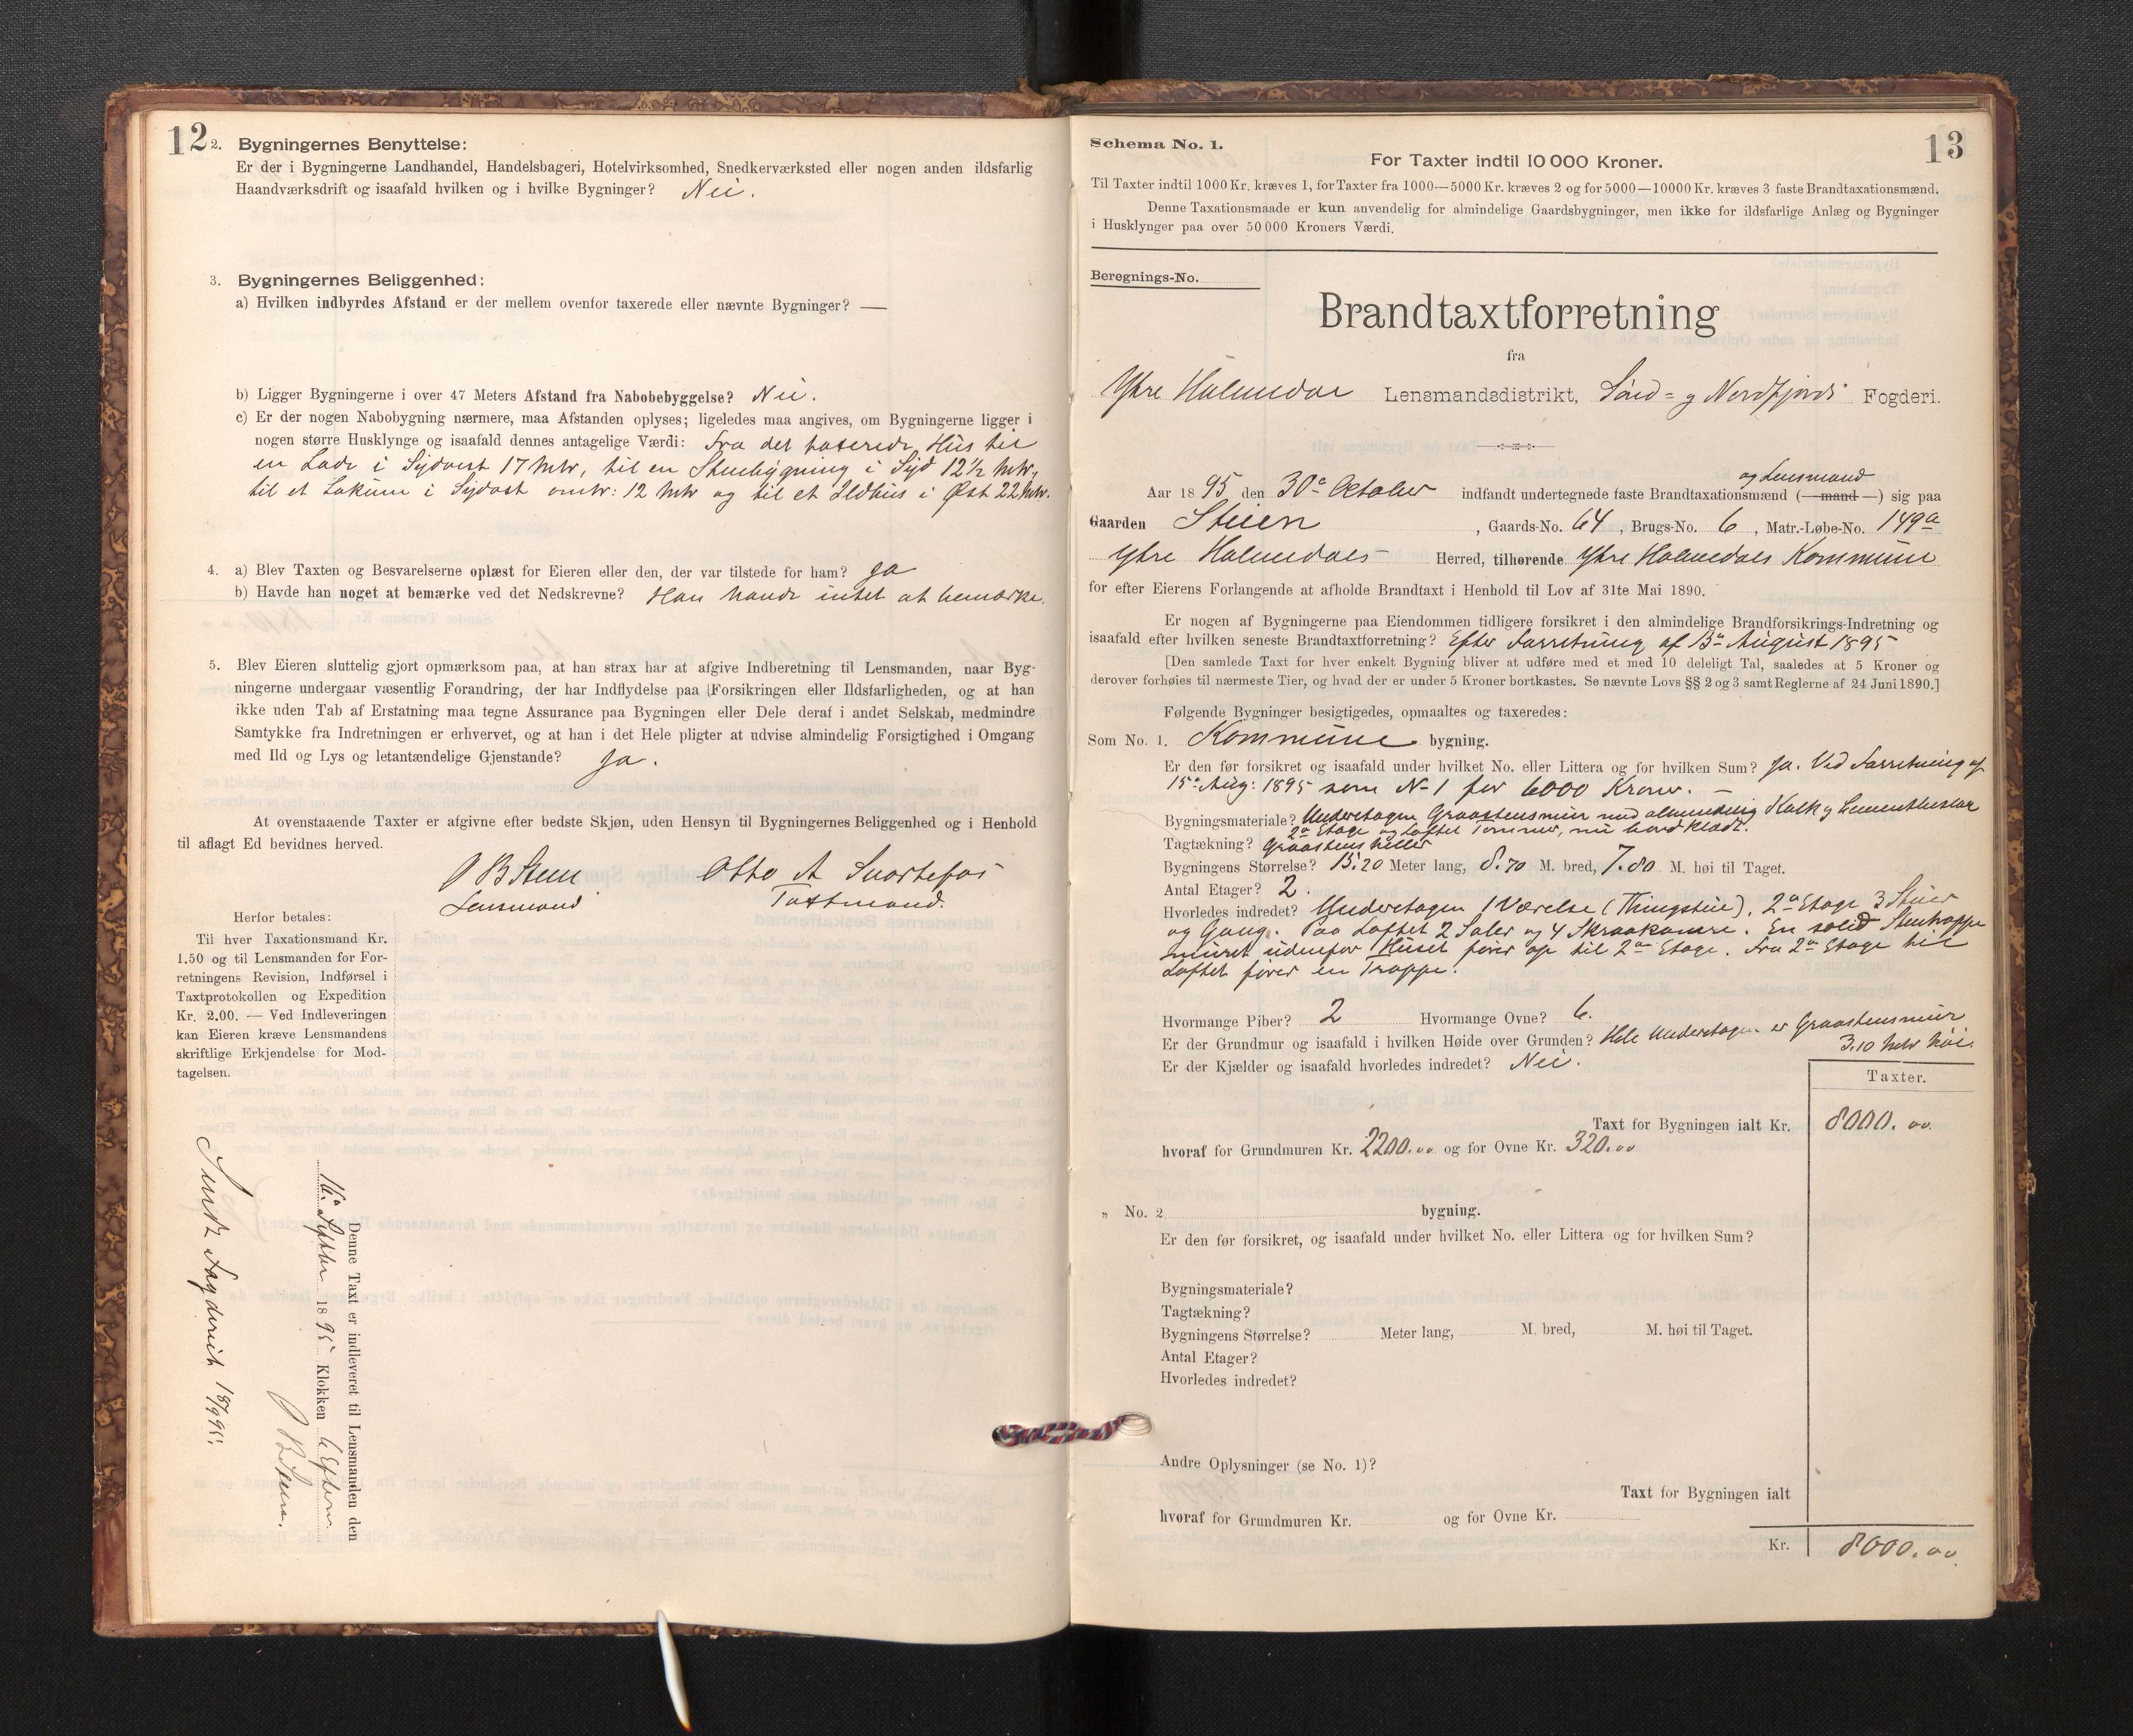 12
2. Bygningernes Benyttelse:
Er der i Bygningerne Landhandel, Handelsbageri, Hotelvirksomhed, Snedkerværksted eller nogen anden ildsfarlig
Haandværksdrift og isaafald hvilken og i hvilke Bygninger? Nei.
3. Bygningernes Beliggenhed:
a) Hvilken indbyrdes Afstand er der mellem ovenfor taxerede eller nævnte Bygninger? —
b) Ligger Bygningerne i over 47 Meters Afstand fra Nabobebyggelse? Nei.
c) Er der nogen Nabobygning nærmere, maa Afstanden oplyses; ligeledes maa angives, om Bygningerne ligger i
nogen større Husklynge og isaafald dennes antagelige Værdi: Fra det taxerede Hus til
en Lade i Sydvest 17 Mtr, til en Stuebygning i Syd 12½ Mtr,
til et Lokum i Sydost omtr: 12 Mtr og til et Ildhus i Øst 22 Mtr.
4. a) Blev Taxten og Besvarelserne oplæst for Eieren eller den, der var tilstede for ham? Ja
b) Havde han noget at bemærke ved det Nedskrevne? Han havde intet at bemærke.
5. Blev Eieren sluttelig gjort opmærksom paa, at han strax har at afgive Indberetning til Lensmanden, naar Byg-
ningerne undergaar væsentlig Forandring, der har Indflydelse paa Forsikringen eller Ildsfarligheden, og at han
ikke uden Tab af Erstatning maa tegne Assurance paa Bygningen eller Dele deraf i andet Selskab, medmindre
Samtykke fra Indretningen er erhvervet, og at han i det Hele pligter at udvise almindelig Forsigtighed i Omgang
med Ild og Lys og letantændelige Gjenstande? Ja.
At ovenstaaende Taxter er afgivne efter bedste Skjøn, uden Hensyn til Bygningernes Beliggenhed og i Henhold
til aflagt Ed bevidnes herved.
Otto A Svortefos
Lensmand Taxtmand.
Herfor betales:
Til hver Taxationsmand Kr.
1.50 og til Lensmanden for For-
retningens Revision, Indførsel i
Taxtprotokollen og Expedition
Kr. 2.00. — Ved Indleveringen
kan Eieren kræve Lensmandens
skriftlige Erkjendelse for Mod-
tagelsen.
Denne Taxt er indleveret til Lensmanden den
1895 Klokken 6 Efterm.
13
Schema No. 1.
For Taxter indtil 10 000 Kroner.
Til Taxter indtil 1000 Kr. kræves 1, for Taxter fra 1000—5000 Kr. kræves 2 og for 5000—10000 Kr. kræves 3 faste Brandtaxationsmænd.
Denne Taxationsmaade er kun anvendelig for almindelige Gaardsbygninger, men ikke for ildsfarlige Anlæg og Bygninger
i Husklynger paa over 50 000 Kroners Værdi.
Beregnings-No.
Brandtaxtforretning
fra
Ytre Holmedal Lensmandsdistrikt, Sønd- og Nordfjords Fogderi.
og Lensmand
Aar 1895 den 30te Oktober indfandt undertegnede faste Brandtaxationsmænd (—mand—) sig paa
Gaarden Steien, Gaards-No. 64, Brugs-No. 6, Matr.-Løbe-No. 149a
Ytre Holmedals Herred, tilhørende Ytre Holmedals Kommune
for efter Eierens Forlangende at afholde Brandtaxt i Henhold til Lov af 31te Mai 1890.
Er nogen af Bygningerne paa Eiendommen tidligere forsikret i den almindelige Brandforsikrings-Indretning og
isaafald efter hvilken seneste Brandtaxtforretning? Efter Forretning af August 1895
[Den samlede Taxt for hver enkelt Bygning bliver at udføre med et med 10 deleligt Tal, saaledes at 5 Kroner og
derover forhøies til nærmeste Tier, og hvad der er under 5 Kroner bortkastes. Se nævnte Lovs §§ 2 og 3 samt Reglerne af 24 Juni 1890.]
Følgende Bygninger besigtigedes, opmaaltes og taxeredes:
Som No. 1. Kommune bygning.
Er den før forsikret og isaafald under hvilket No. eller Littera og for hvilken Sum? Ja. Ved Forretning af
15de Aug: 1895 som No 1 for 6000 Kroner. —
Bygningsmateriale? Underetagen Graastensmur med almindelig Kalk og Cement
2den Etage og Loftet Tømmer, nu bordklædt.
Tagtækning? Graastensheller
Bygningens Størrelse? 15.20 Meter lang, 8.70 M. bred, 7.80 M. høi til Taget.
Antal Etager? 2.
Hvorledes indredet? Underetagen 1 Værelse (Thingstue). 2den Etage 3 Stuer
og Gang. Paa Loftet 2 Saler og 4 Skraakamre. En solid Stentrappe
muret udenfor Huset fører op til 2den Etage. Fra 2den Etage til
Loftet fører en Trappe.
Hvormange Piber? 2 Hvormange Ovne? 6.
Er der Grundmur og isaafald i hvilken Høide over Grunden? Hele Underetagen er Graastensmur
3.10 Mtr høi.
Er der Kjælder og isaafald hvorledes indredet? Nei.
Taxter.
Taxt for Bygningen ialt Kr. 8000.00
hvoraf for Grundmuren Kr. 2200.00 og for Ovne Kr. 320.00
„ No. 2 bygning.
Er den før forsikret, og isaafald under hvilket No. eller Littera og for hvilken Sum?
Bygningsmateriale?
Tagtækning?
Bygningens Størrelse? Meter lang, M. bred, M. høi til Taget.
Antal Etager?
Hvorledes indredet?
Andre Oplysninger (se No. 1)?
Taxt for Bygningen ialt
hvoraf for Grundmuren Kr. og for Ovne Kr.
Kr. 8000.00